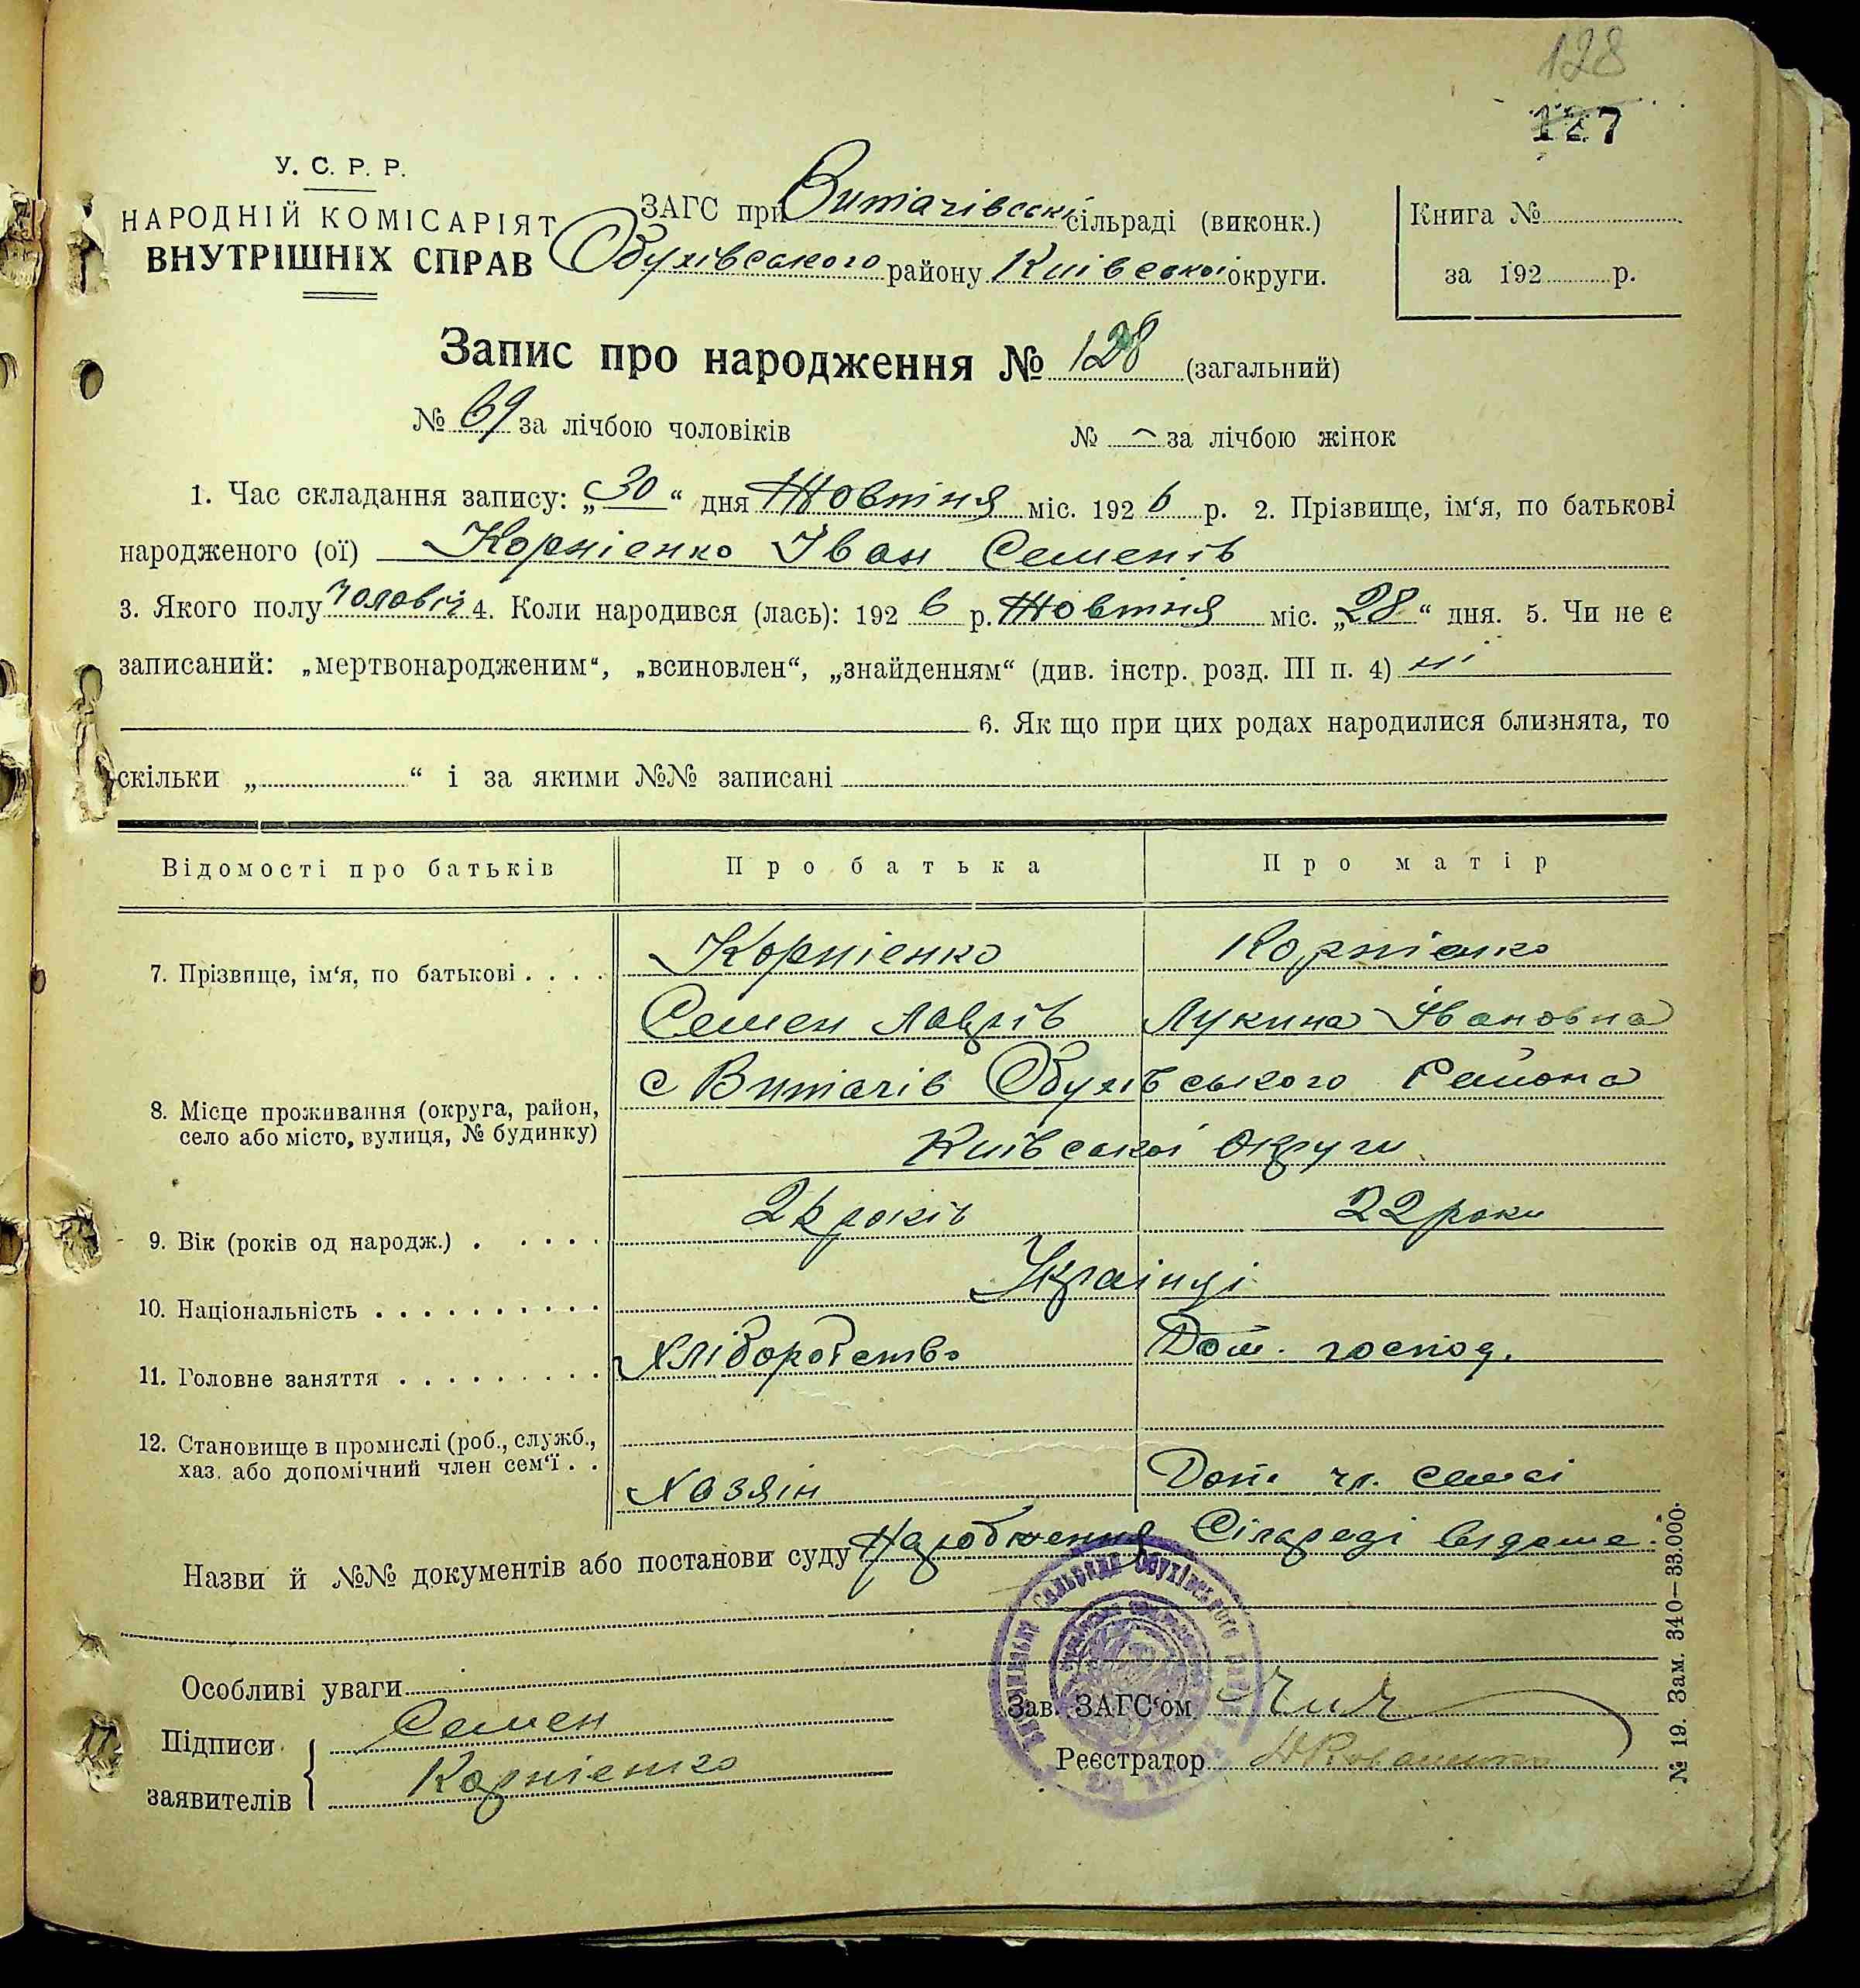 128
127
У. С. Р. Р.
НАРОДНІЙ КОМІСАРІЯТ
ВНУТРІШНІХ СПРАВ
ЗАГС при Витачівській сільраді (виконк.)
Обухівського району Київської округи.
Книга №
за 192 р.
Запис про народження № 128 (загальний)
№ 69 за лічбою чоловіків № – за лічбою жінок
1. Час складання запису: „30“ дня Жовтня міс. 1926 р. 2. Прізвище, ім‘я, по батькові
народженого (ої) Корнієнко Іван Семенів
3. Якого полу чоловіч 4. Коли народився (лась): 1926 р. Жовтня міс. „28“ дня. 5. Чи не є
записаний: „мертвонародженим“, „всиновлен“, „знайденням“ (див. інстр. розд. III п. 4) ні
6. Як що при цих родах народилися близнята, то
скільки „ “ і за якими №№ записані
Відомості про батьків Про батька Про матір
7. Прізвище, ім‘я, по батькові . . . . Корнієнко Корнієнко
Семен Лаврів Лукина Івановна
8. Місце проживання (округа, район,
село або місто, вулиця, № будинку)
с Витачів Обухівського Района
Київської округи
9. Вік (років од народж.) . . . . . 26 років 22 роки
10. Національність . . . . . . . . . . Українці
11. Головне заняття . . . . . . . . . Хліборобство Дом. господ.
12. Становище в промислі (роб., служб.,
хаз. або допомічний член сем‘ї . .
Хозяін Доп. чл. семєі
Назви й №№ документів або постанови суду Народження Сільраді відоме.
Особливі уваги
Підписи
заявителів
Семен
Корнієнко
Зав. ЗАГС‘ом
Реєстратор
№ 19. Зам. 340–33.000.